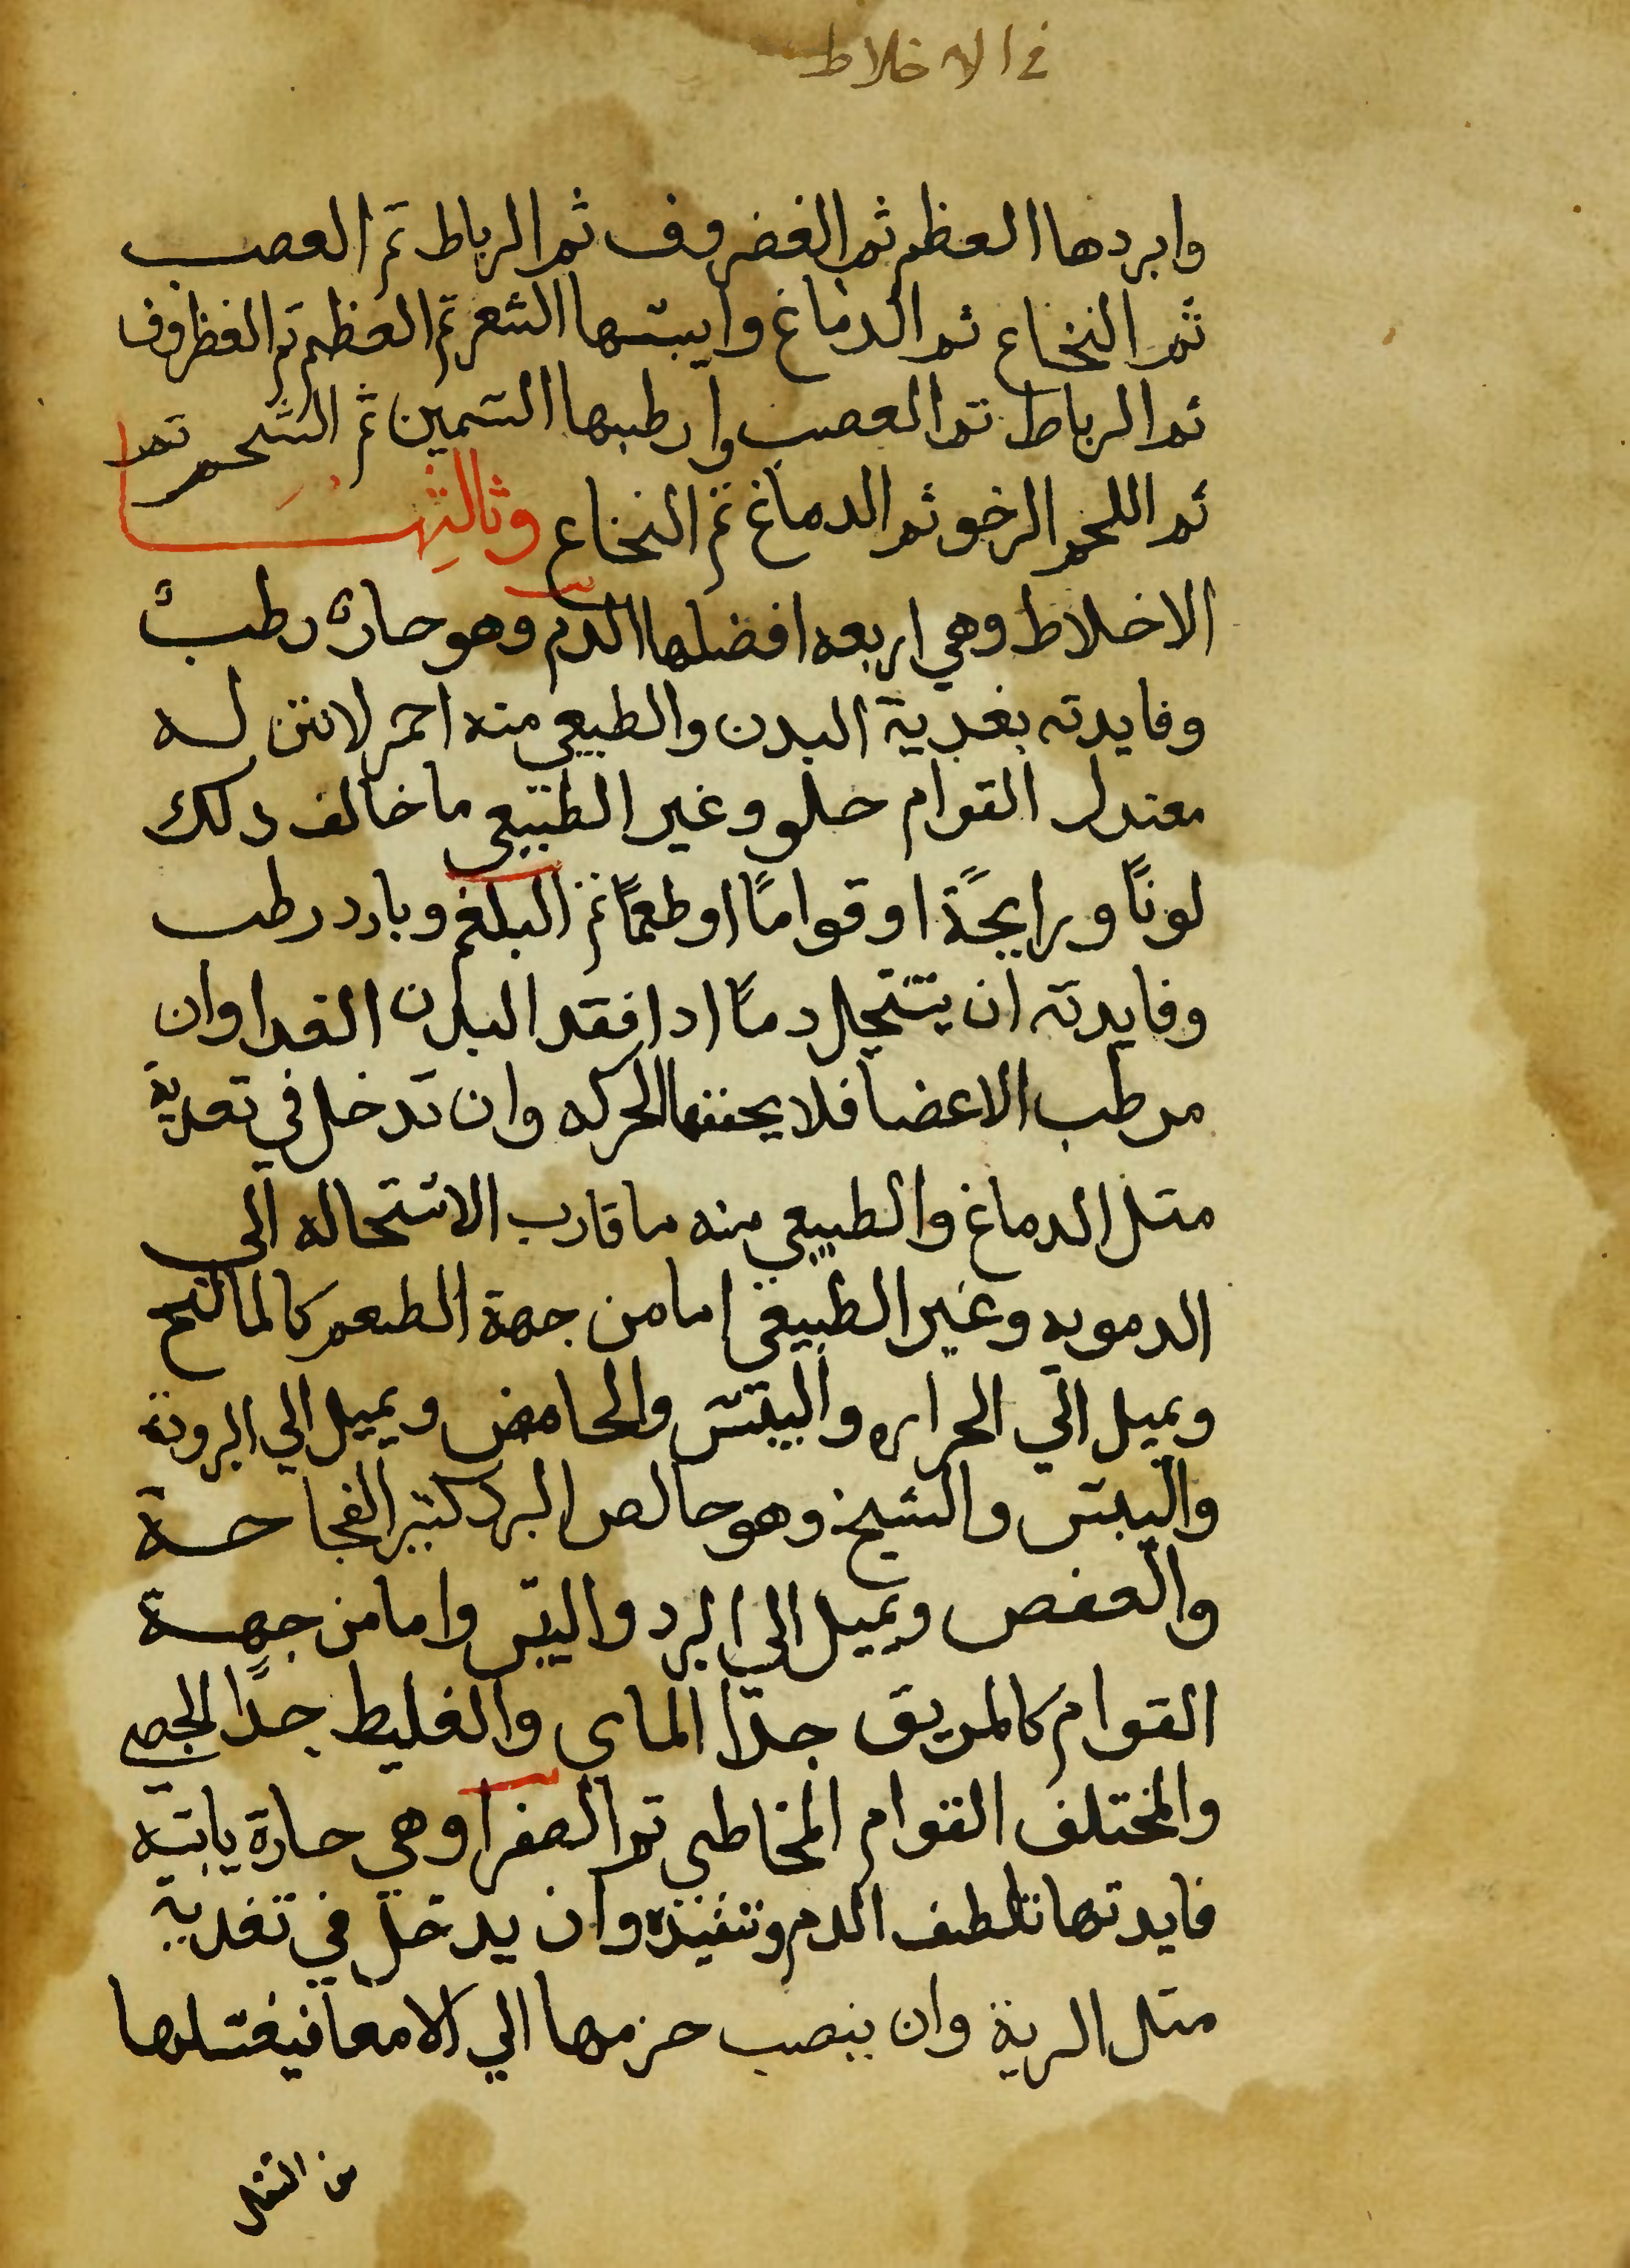 في الاخلاط
وابردها العظم ثم الغضروف ثم الرباط ثم العصب
ثم النخاع ثم الدماغ وايبسها الشعر ثم العظم ثم الغظروف
ثم الرباط ثم العصب وارطبها السمين ثم الشحم ثم
ثم اللحم الرخو ثم الدماغ ثم النخاع وثالثها
الاخلاط وهي اربعه افضلها الدم وهو حار رطب
وفايدته تغدية البدن والطبيعي منه احمر لانتن له
معتدل القوام حلو وغير الطبيعي ما خالف دلك
لونًا ورايحًة او قوامًا او طعمًا ثم البلغم وبارد رطب
وفايدته ان يستحيل دمًا ادا فقد البدن الغدا وان
يرطب الاعضا فلا يجففها الحركه وان تدخل في تغدية
متل الدماغ والطبيعي منه ما قارب الاستحاله الى
الدمويه وغير الطبيعي اما من جهة الطعم كالمالح
ويميل الي الحراره واليبس والحامض ويميل الي البرودة
واليبس والمسيخ وهو خالص البرد كثير الفجاجة
والعفص ويميل الي البرد واليبس واما من جهة
القوام كالرقيق جدا الماي والغليط جدًا الجصي
والمختلف القوام المخاطي تم الصفرا وهي حارة يابسه
فايدتها تلطف الدم وتنفيذه وان يدخل في تغدية
متل الرية وان ينصب جزمها الي الامعا فيغسلها
من الثفل